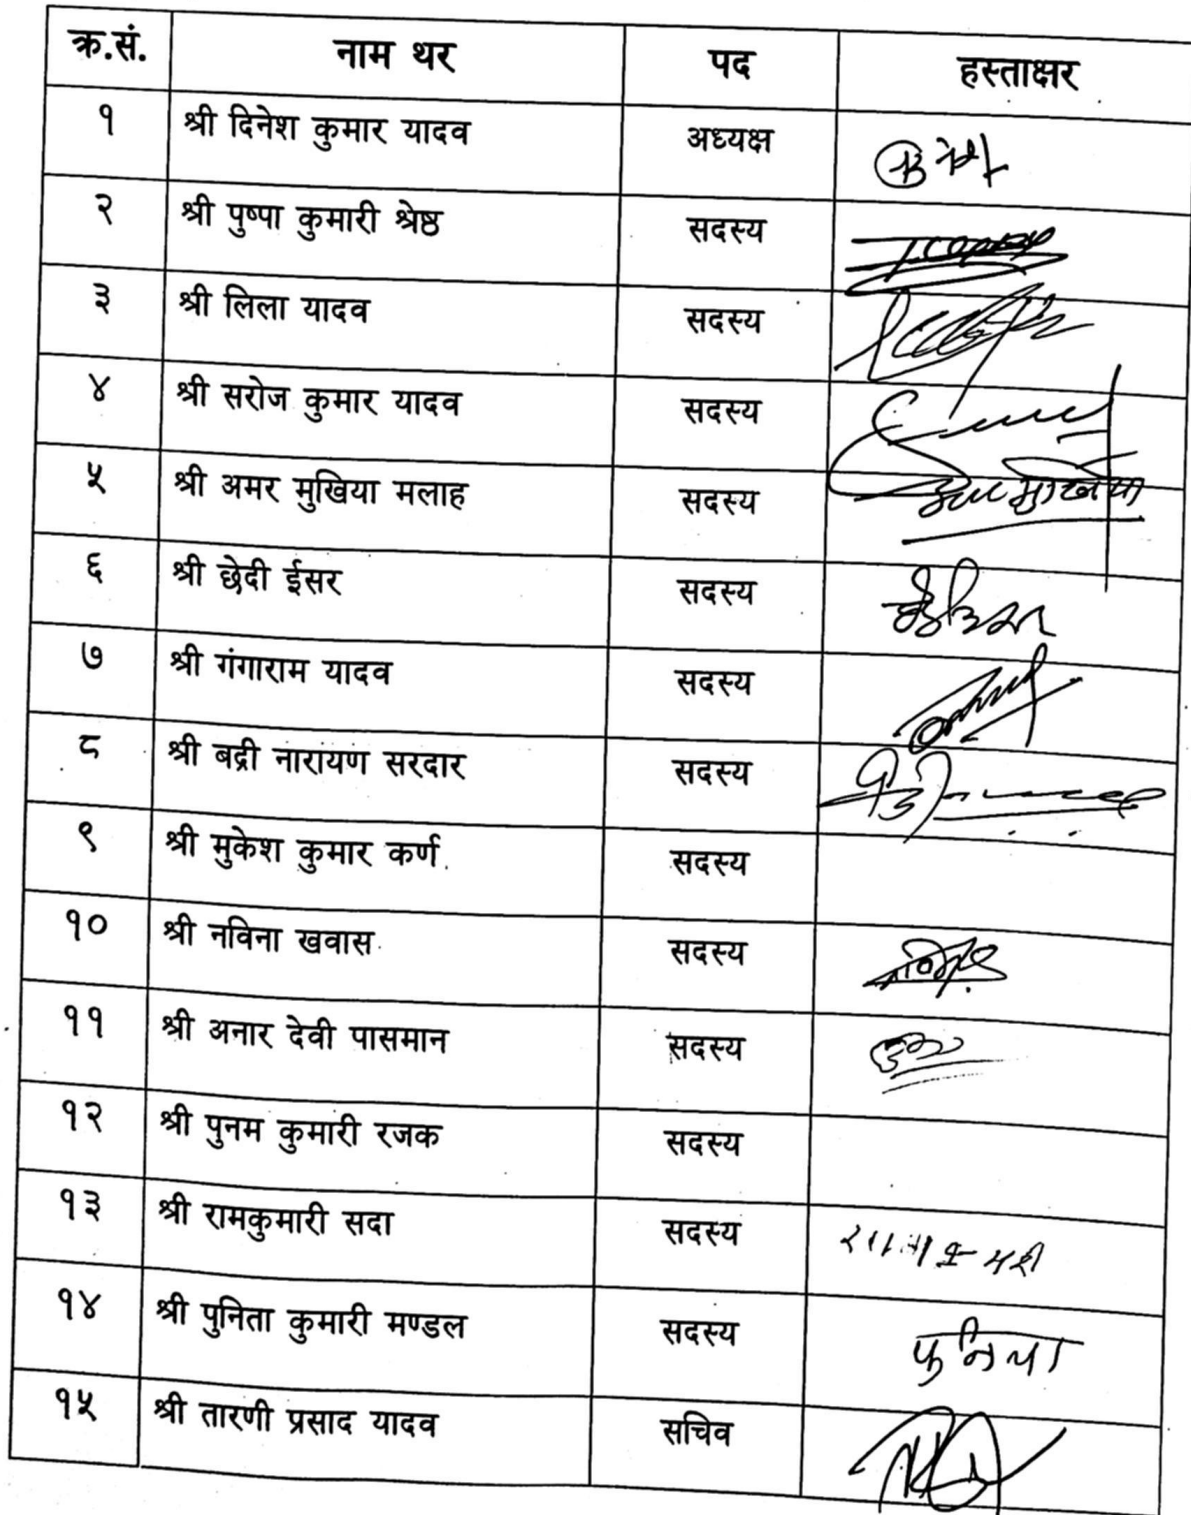 क्र.सं. नाम थर पद हस्ताक्षर
१ श्री दिनेश कुमार यादव अध्यक्ष
२ श्री पुष्पा कुमारी श्रेष्ठ सदस्य
३ श्री लिला यादव सदस्य
४ श्री सरोज कुमार यादव सदस्य
५ श्री अमर मुखिया मलाह सदस्य
६ श्री छेदी ईसर सदस्य
७ श्री गंगाराम यादव सदस्य
८ श्री बद्री नारायण सरदार सदस्य
९ श्री मुकेश कुमार कर्ण सदस्य
१० श्री नविना खवास सदस्य
११ श्री अनार देवी पासमान सदस्य
१२ श्री पुनम कुमारी रजक सदस्य
१३ श्री रामकुमारी सदा सदस्य
१४ श्री पुनिता कुमारी मण्डल सदस्य
१५ श्री तारणी प्रसाद यादव सचिव